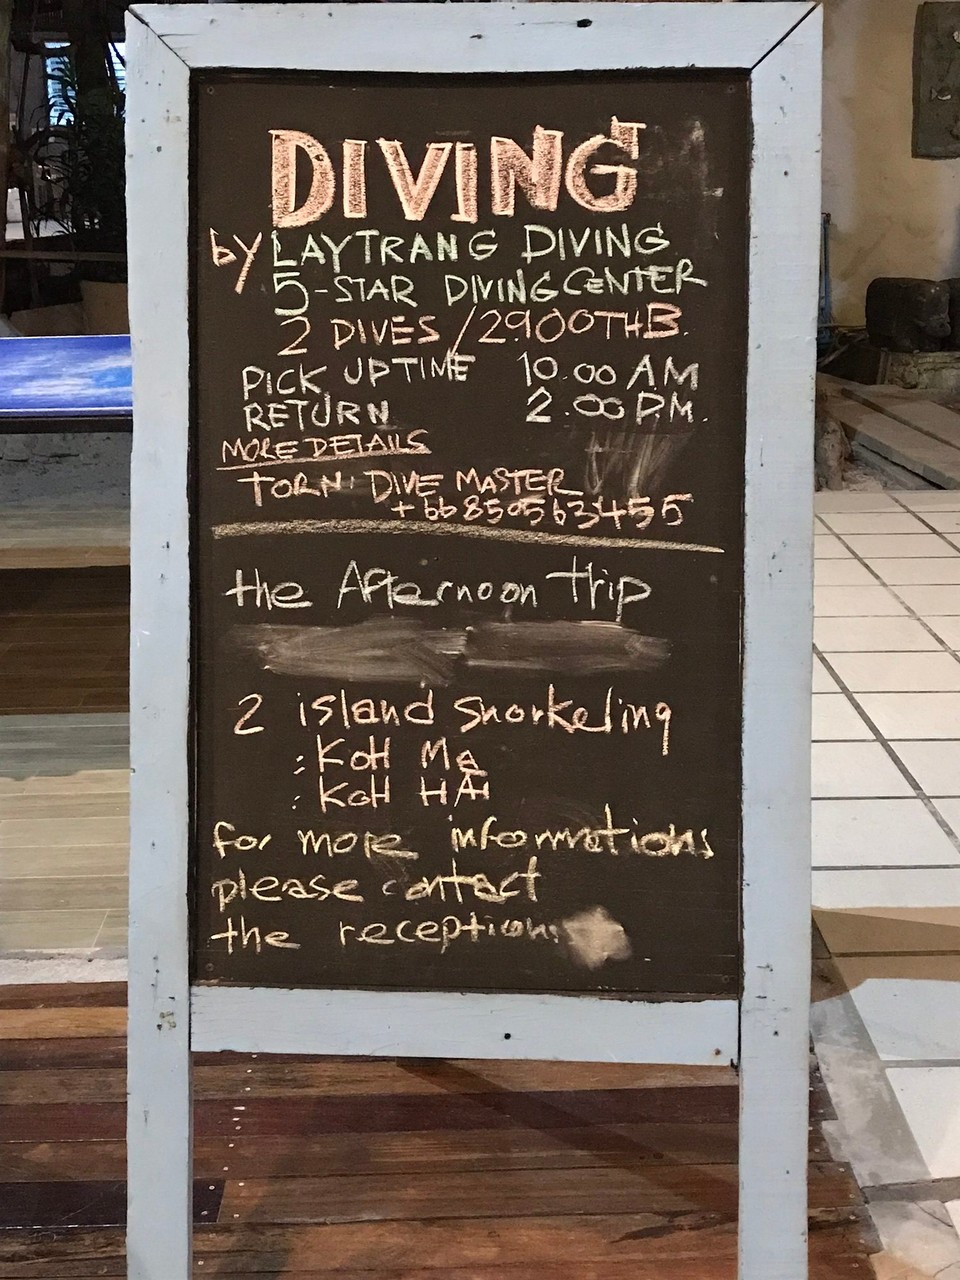 DIVING
by LAYTRANG DIVING
5-STAR DIVING CENTER
2 DIVES / 2900 THB.
PICK UP TIME 10.00 AM
RETURN 2.00 P.M.
MORE DETAILS
TORN: DIVE MASTER
+66 850563455
the Afternoon Trip
2 island snorkeling
: KOH Ma
: KOH HAI
for more informations
please contact
the reception